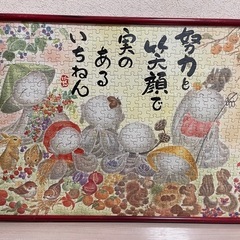 努力と
笑顔で
実の
ある
いちねん